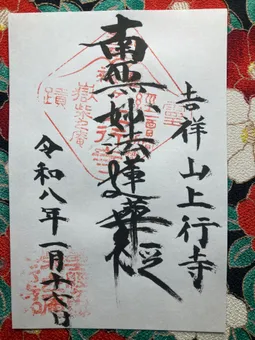 吉祥山上行寺
南無妙法蓮華経
令和八年一月十六日